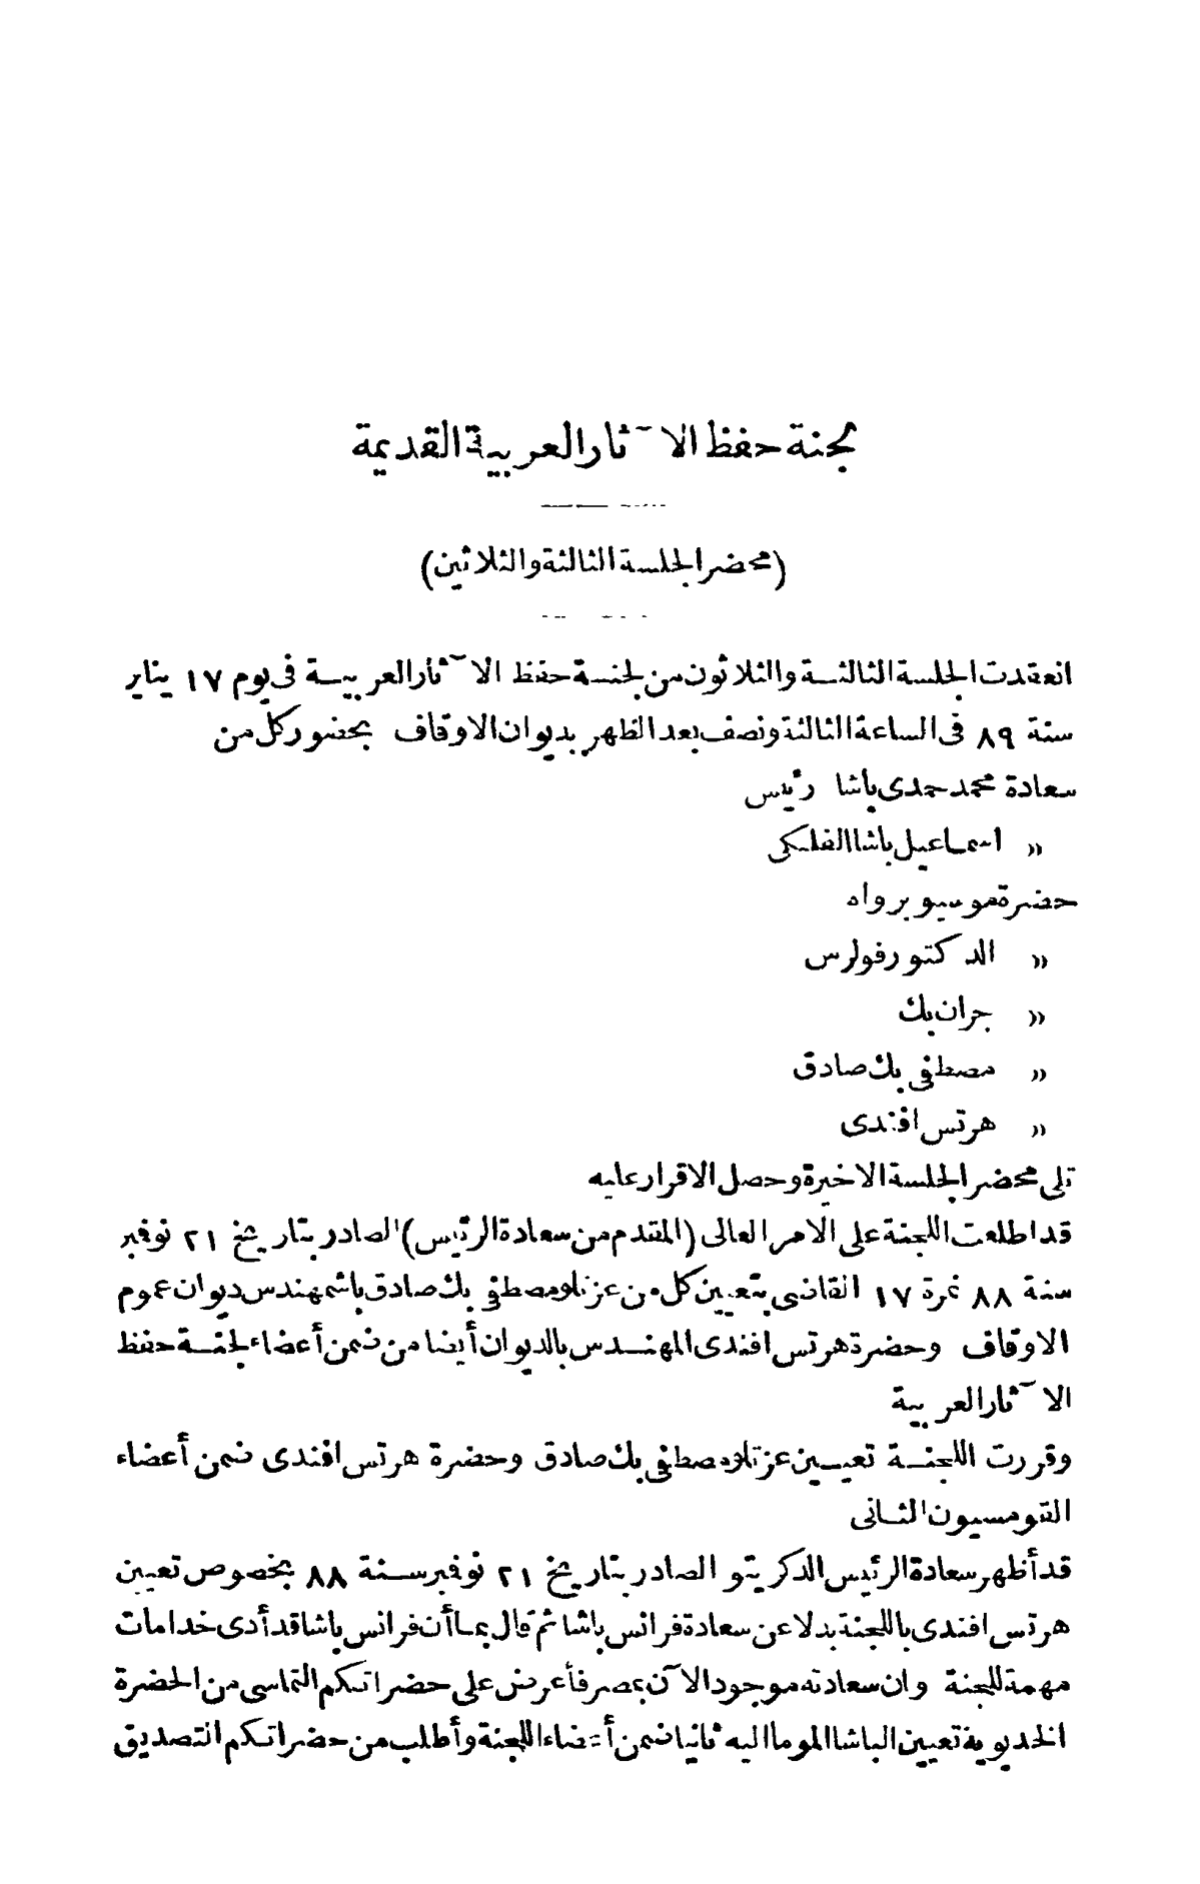 لجنة حفظ الآثار العربية القديمة
(محضر الجلسة الثالثة والثلاثين)
انعقدت الجلسة الثالثة والثلاثون من لجنة حفظ الآثار العربية فى يوم ١٧ يناير
سنة ٨٩ فى الساعة الثالثة ونصف بعد الظهر بديوان الاوقاف بحضور كل من
سعادة محمد حمدى باشا رئيس
» اسماعيل باشا الفلكى
حضرة موسيو برواه
» الدكتور فولرس
» جران بك
» مصطفى بك صادق
» هرتس افندى
تلى محضر الجلسة الاخيرة وحصل الاقرار عليه
قد اطلعت اللجنة على الامر العالى (المقدم من سعادة الرئيس) الصادر بتاريخ ٢١ نوفمبر
سنة ٨٨ نمرة ١٧ القاضى بتعيين كل من عزتلو مصطفى بك صادق باشمهندس ديوان عموم
الاوقاف وحضرة هرتس افندى المهندس بالديوان أيضا من ضمن أعضاء لجنة حفظ
الآثار العربية
وقررت اللجنة تعيين عزتلو مصطفى بك صادق وحضرة هرتس افندى ضمن أعضاء
القومسيون الثانى
قد أظهر سعادة الرئيس الدكريتو الصادر بتاريخ ٢١ نوفمبر سنة ٨٨ بخصوص تعيين
هرتس افندى باللجنة بدلا عن سعادة فرانس باشا ثم قال بما أن فرانس باشا قد أدى خدامات
مهمة للجنة وان سعادته موجود الآن بمصر فأعرض على حضراتكم التماسى من الحضرة
الخديوية تعيين الباشا الموما اليه ثانيا ضمن أعضاء اللجنة وأطلب من حضراتكم التصديق